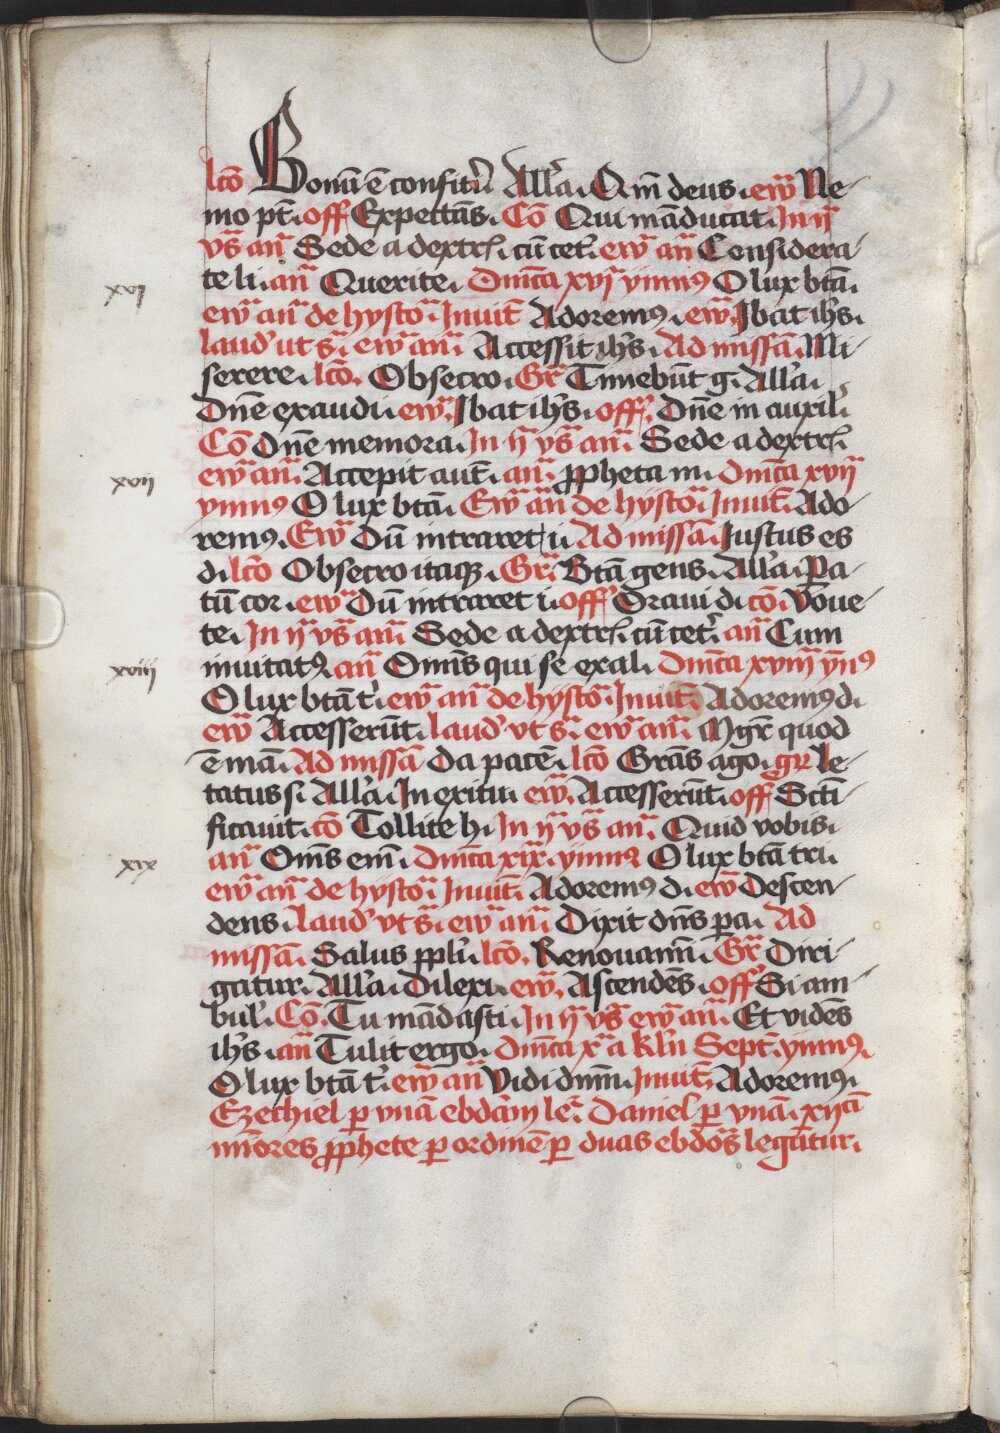 lcō Bonū ē confitr̄i Allꝰa. Qm̄ deus. ew̄ Ne-
mo pt̄. off Expectās. Cō Qui māducat. In ij
vs̄ an̄ Sede a dextrꝭ. cū cet̄. ew̄ an̄ Considera-
te li. an̄ Querite. Dnīca xvj ymnꝯ O lux btā.
xvj
ew̄ an̄ de hystō. Inuit̄ Adoremꝯ. ew̄. Ibat ihs̄.
laudꝰ ut s̄. ew̄ an̄. Accessit ihs̄. Ad missā. Mi-
serere. lcō. Obsecro. Gr̄ Timebūt g. Allꝰa.
Dn̄e exaudi. ew̄. Ibat ihs̄. off. Dn̄e in auxil̄.
Cō Dn̄e memora. In ij vs̄ an̄. Sede a dextrꝭ.
ew̄ an̄. Accepit aut̄. an̄. ꝓpheta m. Dnīca xvij
xvij
ymnꝯ O lux btā. Ew̄ an̄ de hystō. Inuit̄. Ado-
remꝯ. Ew̄ Dū intraret ii Ad missā. Iustus es
d. lcō Obsecro itaqꝫ. Gr̄. Btā gens. Allꝰa. Pa-
tū cor. ew̄ Dū intraret i. off Oraui d. cō. Voue-
te. In ij vs̄ an̄. Sede a dextrꝭ. cū cet̄. an̄ Cum
inuitatꝯ an̄ Omīs qui se exal. Dnīca xviij ȳnꝯ
xviij
O lux btā t̄. ew̄ an̄ de hystō. Inuit̄. Adoremꝯ d.
ew̄ Accesserūt. laudꝰ vt s̄. ew̄ an̄. Mgr̄ quod
ē mā. Ad missā Da pacē. lcō Grās ago. gr̄ le-
tatus s. Allꝰa. In exitu. ew̄. Accesserūt. off Scti-
ficauit. cō Tollite h. In ij vs̄ an̄. Quid vobis.
an̄ Om̄s em̄. Dnīca xix. ymnꝯ O lux btā tri.
xix
ew̄ an̄ de hystō. Inuit̄. Adoremꝯ d. ew̄ Descen-
dens. laudꝰ vt s̄. ew̄ an̄. Dixit dn̄s pa. Ad
missā. Salus ppl̄i. lcō. Renouamī. Gr̄ Diri-
gatur. Allꝰa. Dilexi. ew̄. Ascendēs. off Si am-
bul̄. Cō. Tu mādasti. In ij vs̄ ew̄ an̄. Et vidēs
ihs̄. an̄ Tulit ergo. Dnīca x̄ a kl̄n Sept̄. ymnꝯ.
O lux btā t̄. ew̄ an̄ Vidi dnm̄. Inuit̄. Adoremꝯ.
Ezechiel ꝑ vnā ebdām le. Daniel ꝑ vnā. xijcī
mīores ꝓphete ꝑ ordinē ꝑ duas ebdōs legūtur.